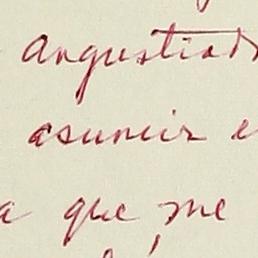 angustiad
asumir e
a que me